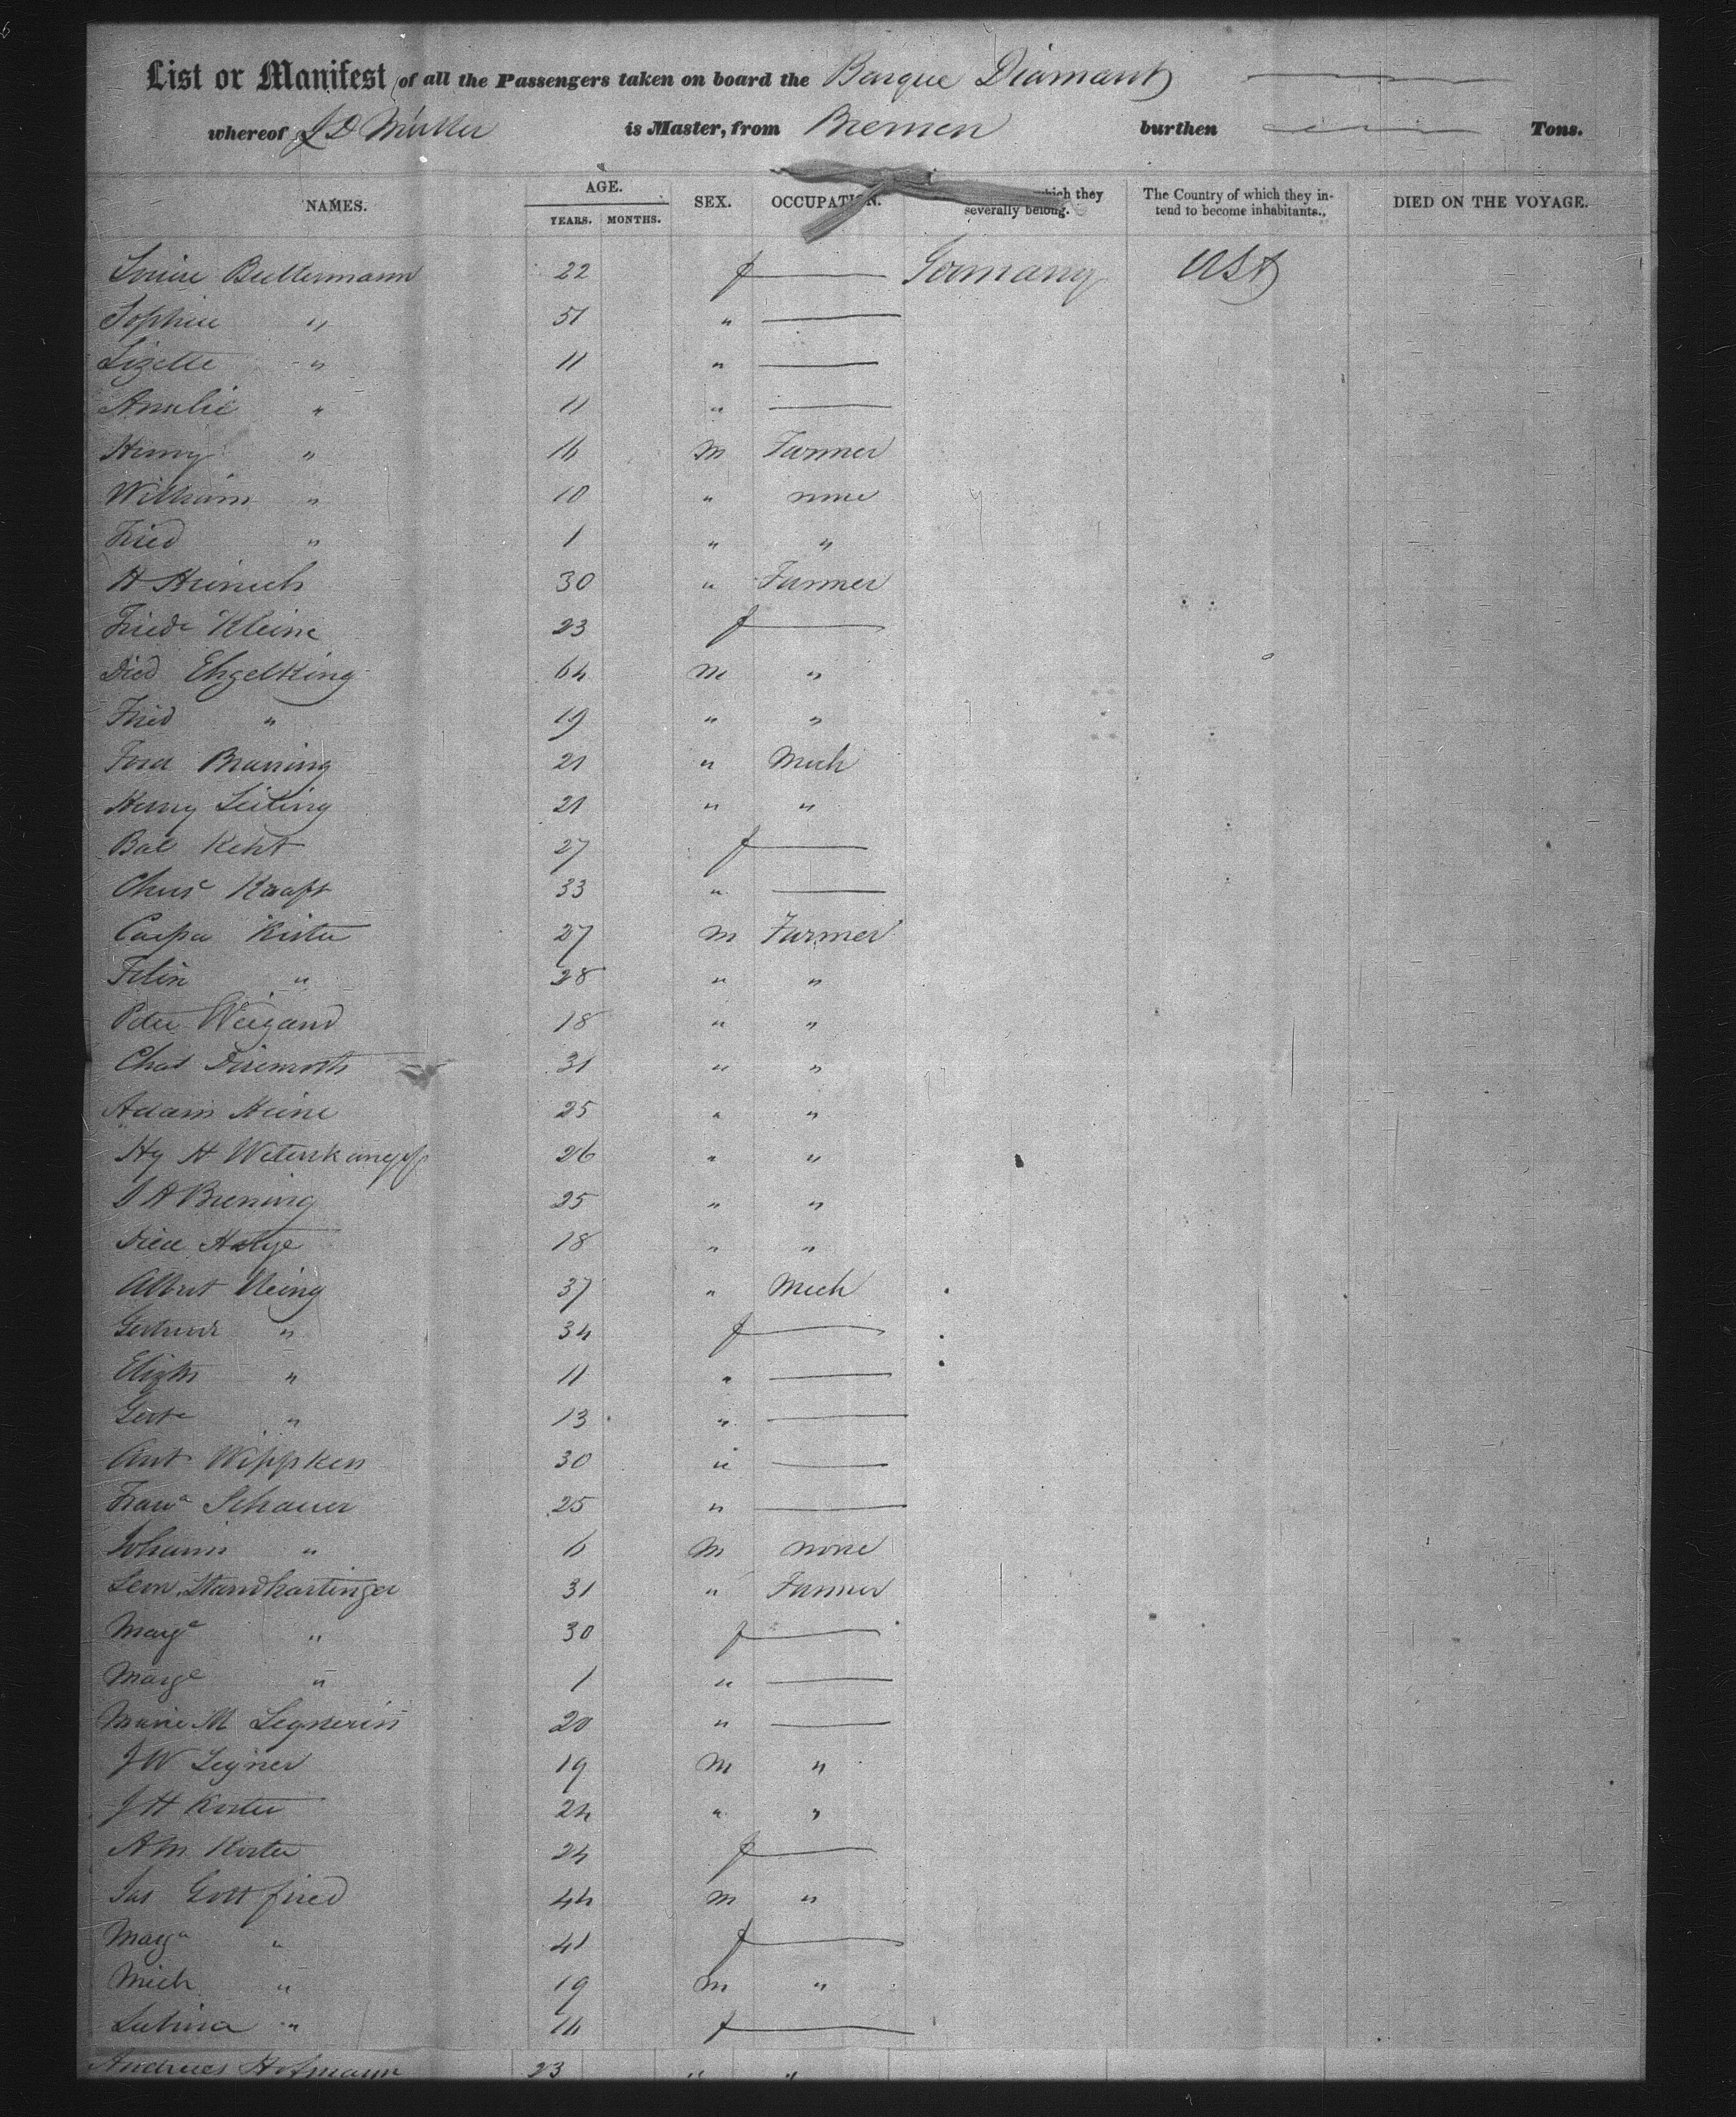 List or Manifest of all the Passengers taken on board the Barque Diamant
whereof J D Müller is Master, from Bremen burthen Tons.
NAMES. AGE. YEARS. MONTHS. SEX. OCCUPATION. which they severally belong. The Country of which they intend to become inhabitants. DIED ON THE VOYAGE.
Louise Bultermann 22 f — Germany USA
Sophie " 51 " —
Lizette " 11 " —
Amalie " 11 " —
Henry " 16 m Farmer
William " 10 " none
Fried " 1 " "
H Heinrich 30 " Farmer
Friede Kleine 23 f —
Died Engelking 64 m "
Fried " 19 " "
Ferd Brauning 21 " Mech
Henry Leiting 21 " "
Bal Keht 27 f —
Chrs Kraft 33 " —
27 m Farmer
" 28 " "
Peter Weigand 18 " "
Chas 31 " "
Adam Heine 25 " "
Hy H 26 " "
J H Brening 25 " "
18 " "
Albert 37 " Mech
Gertrude " 34 f —
Elizth " 11 " —
Gert " 13 " —
Ant Wippken 30 " —
Schauer 25 " —
Johann " 6 m none
Leon Standhartinger 31 " Farmer
Marge " 30 f —
Marge " 1 " —
Marie M Legnerin 20 " —
J W Legner 19 m "
J H Koster 24 " "
A M Koster 24 f —
Gottfried 44 m "
Marga " 41 f —
Mich " 19 m "
" 16 f —
Andreas Hofmann 23 " "